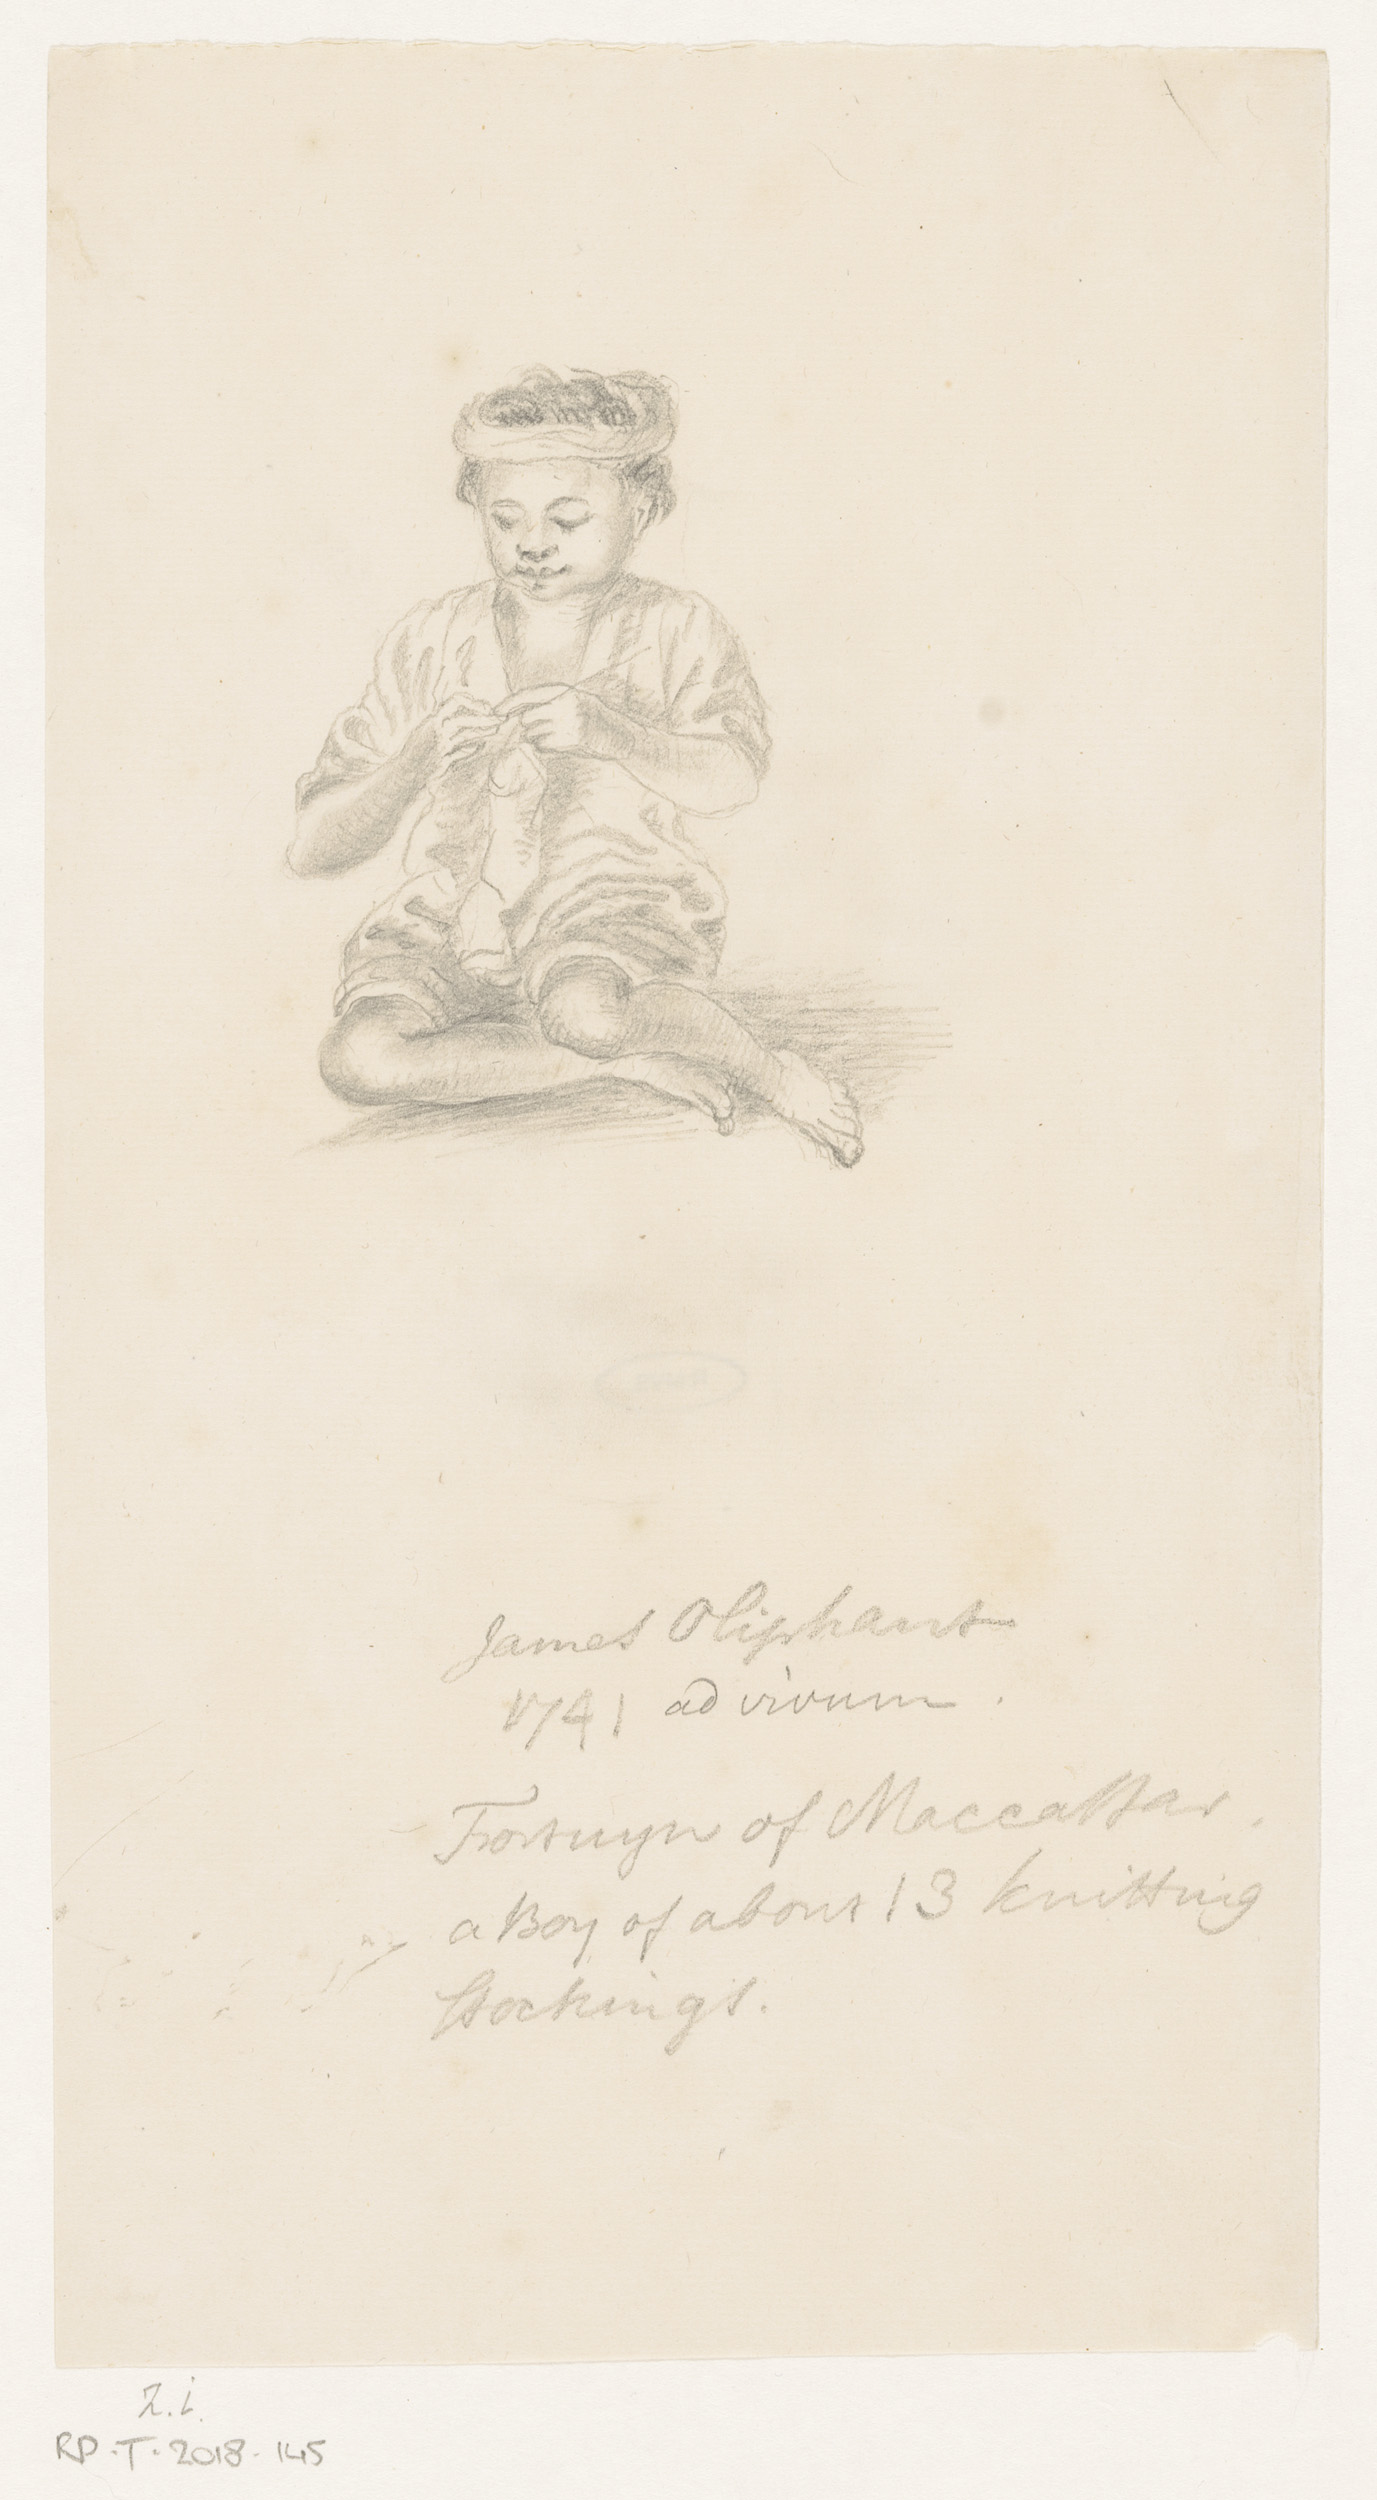 James Oliphant
1741 ad vivum.
Fortuyn of Maccassar.
a Boy of about 13 knitting
stockings.
z.i.
RP.T.2018-145